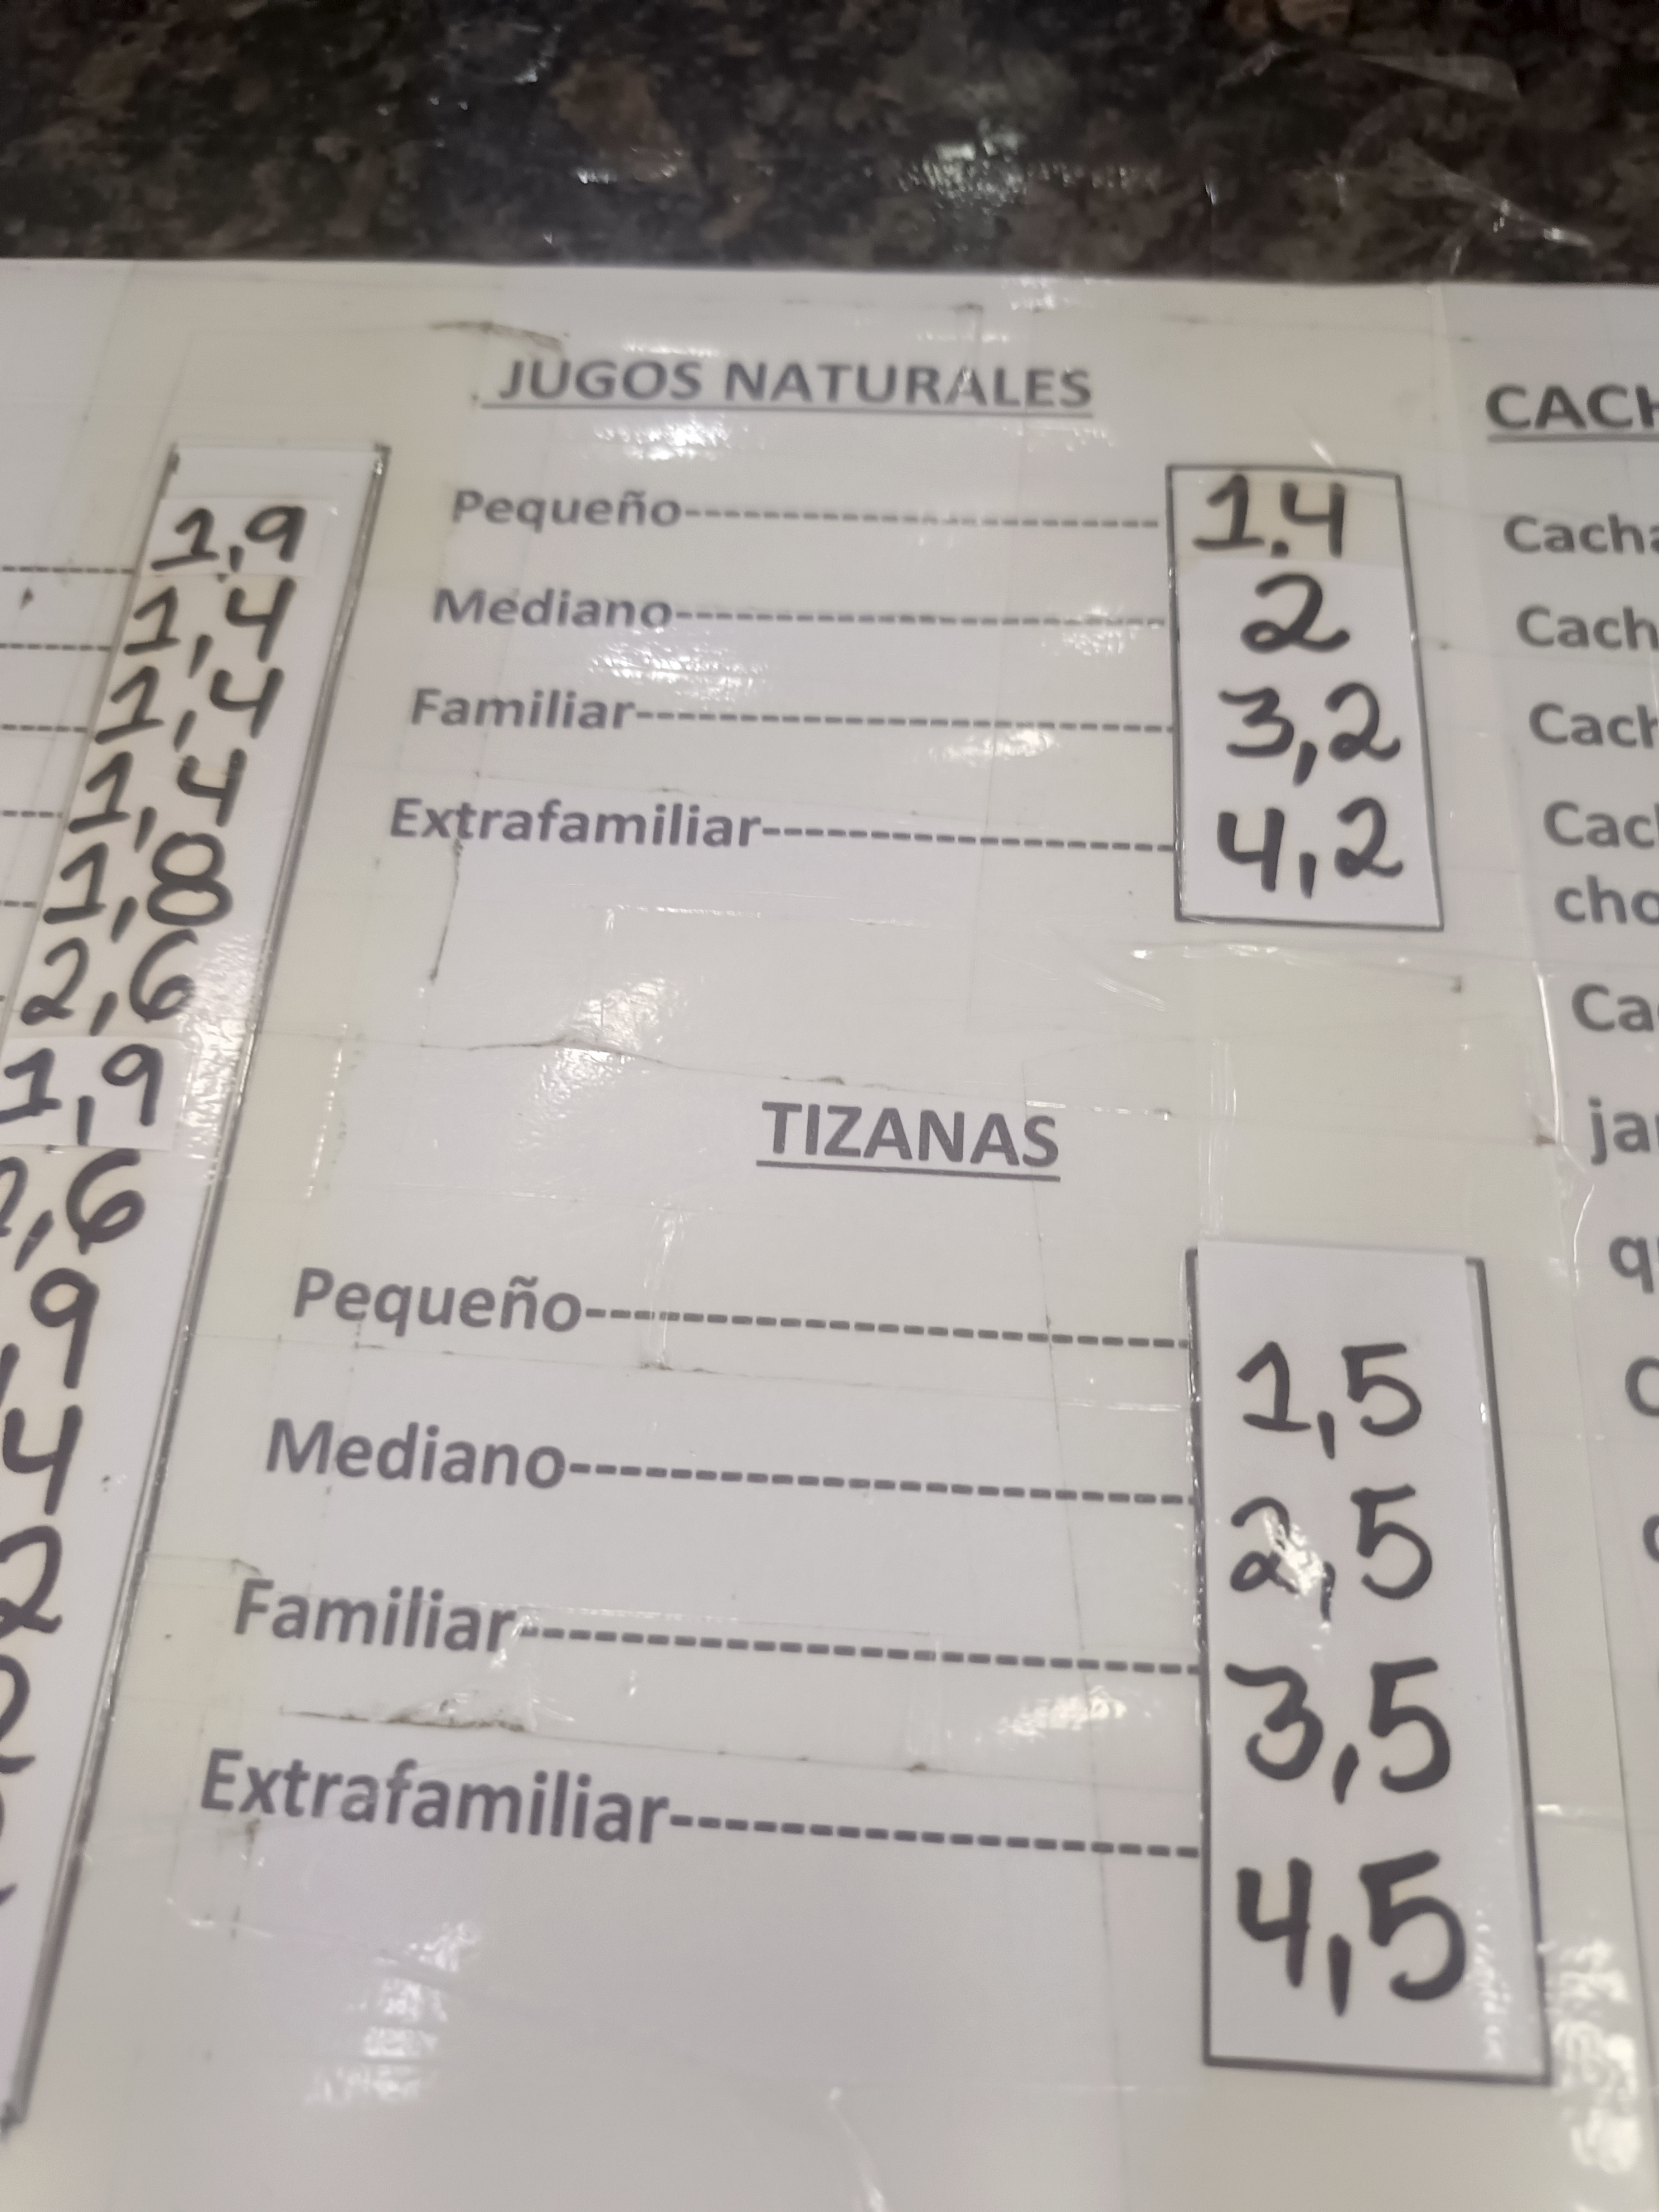 1,9
1,4
1,4
1,4
1,8
2,6
1,9
,6
,9
4
2
JUGOS NATURALES
Pequeño---------------------------- 1.4
Mediano---------------------------- 2
Familiar---------------------------- 3,2
Extrafamiliar---------------------- 4,2
TIZANAS
Pequeño---------------------------- 1,5
Mediano---------------------------- 2,5
Familiar---------------------------- 3,5
Extrafamiliar---------------------- 4,5